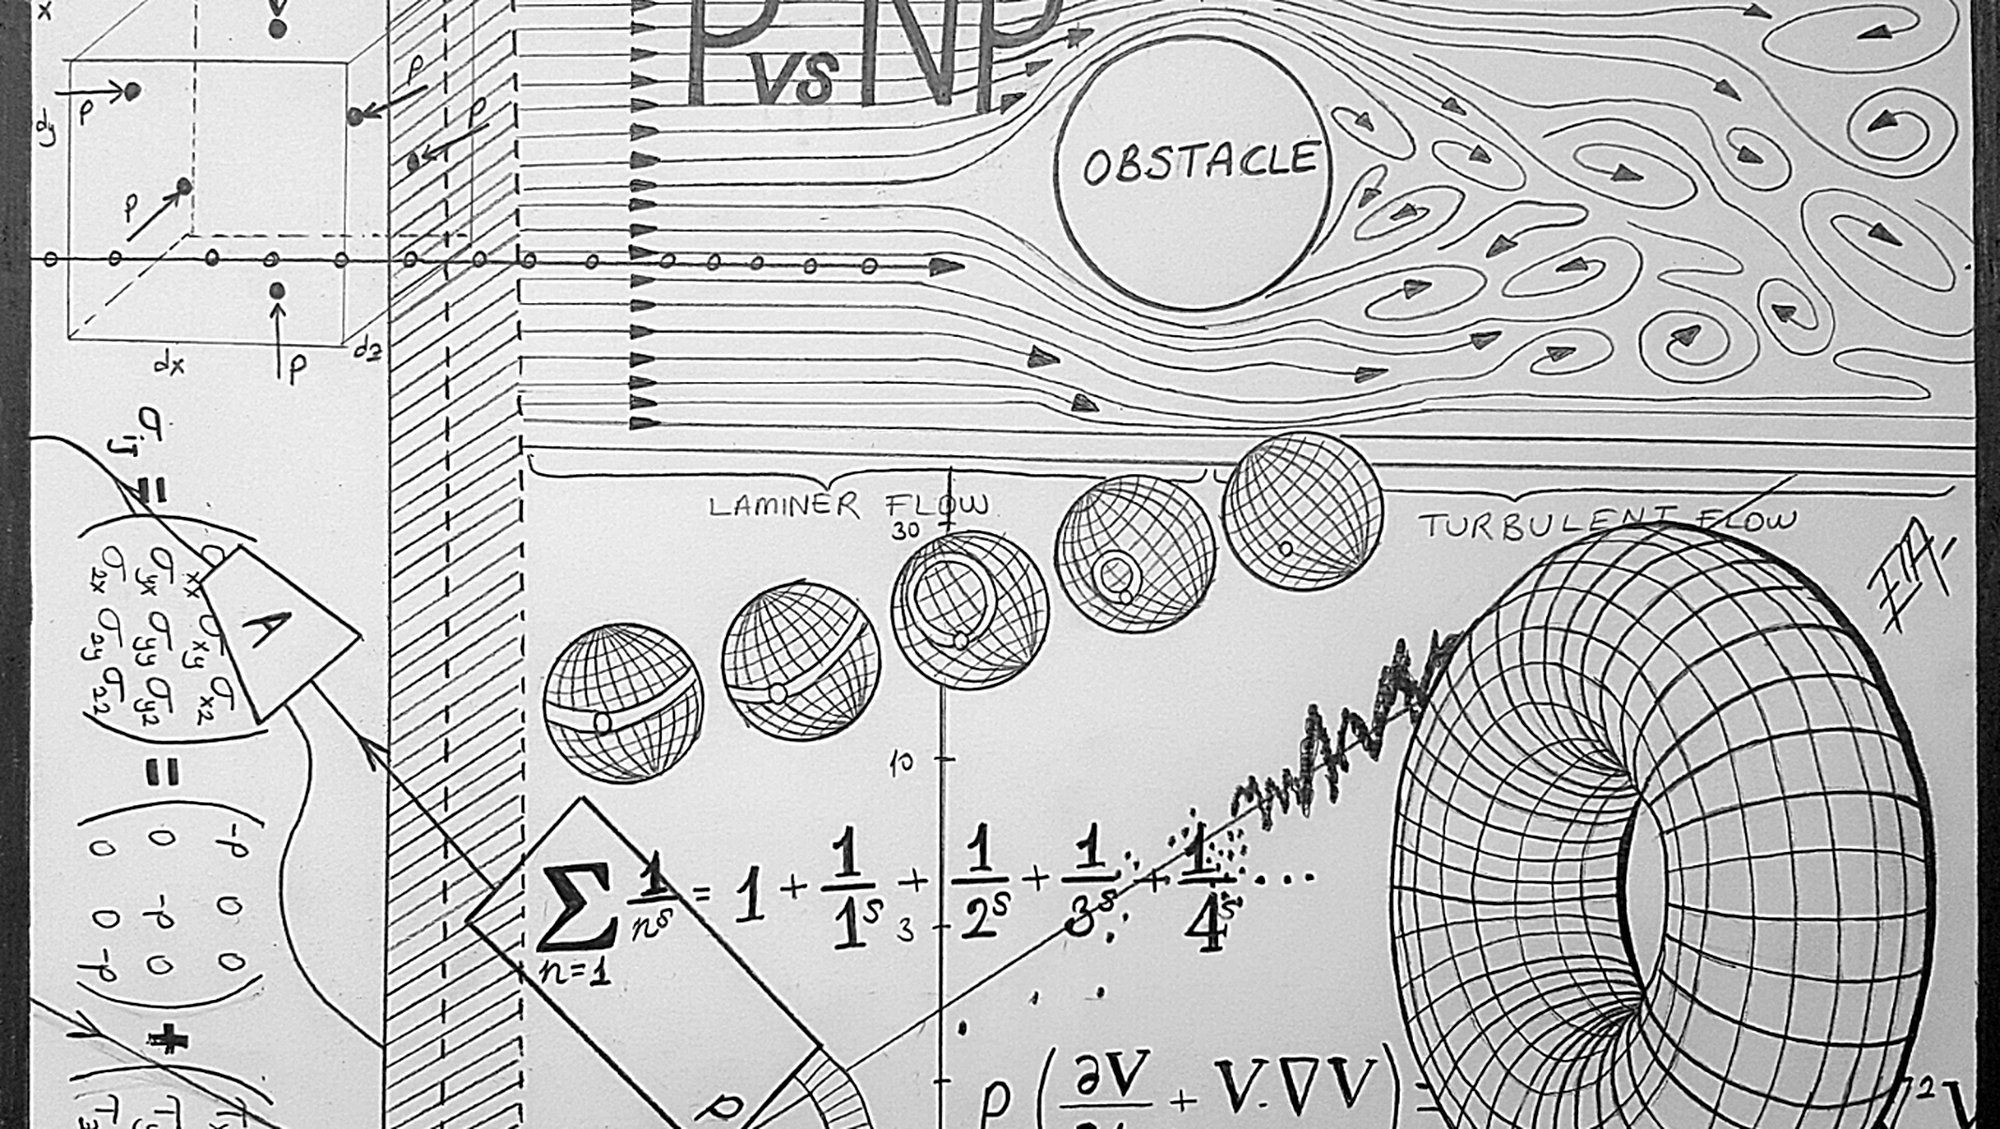 P vs NP
x
dy
P
P
P
P
P
dx
dz
OBSTACLE
LAMINER FLOW
TURBULENT FLOW
30
10
3
σij =
σxx σxy σxz
σyx σyy σyz
σzx σzy σzz
=
-P 0 0
0 -P 0
0 0 -P
+
A
∑ n=1 1/n^s = 1 + 1/1^s + 1/2^s + 1/3^s + 1/4^s ...
ρ (∂V/∂t + V.∇V) =